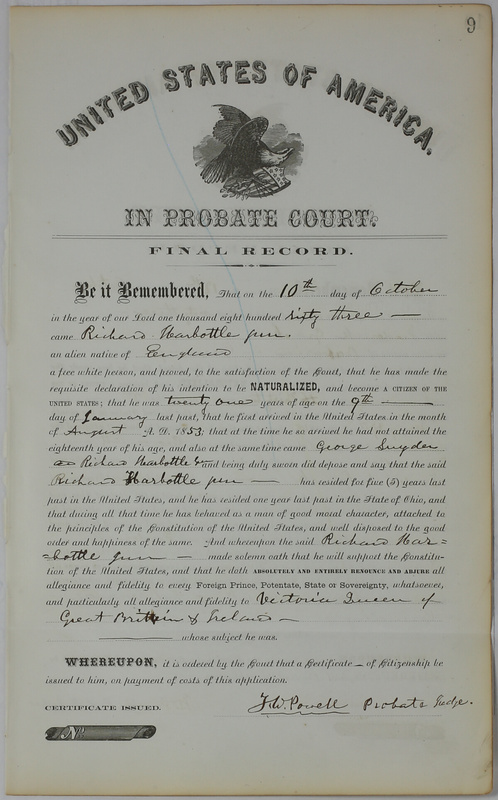 9
UNITED STATES OF AMERICA.
IN PROBATE COURT.
FINAL RECORD.
Be it Remembered, That on the 10th day of October
in the year of our Lord one thousand eight hundred sixty three —
came Richard Harbottle jun.
an alien native of England
a free white person, and proved, to the satisfaction of the Court, that he has made the
requisite declaration of his intention to be NATURALIZED, and become A CITIZEN OF THE
UNITED STATES; that he was twenty one years of age on the 9th —
day of January last past, that he first arrived in the United States in the month
of August A. D. 1853; that at the time he so arrived he had not attained the
eighteenth year of his age, and also at the same time came George Snyder
Richard Harbottle and being duly sworn did depose and say that the said
Richard Harbottle jun — has resided for five (5) years last
past in the United States, and he has resided one year last past in the State of Ohio, and
that during all that time he has behaved as a man of good moral character, attached to
the principles of the Constitution of the United States, and well disposed to the good
order and happiness of the same. And whereupon the said Richard Har=
=bottle jun — made solemn oath that he will support the Constitu-
tion of the United States, and that he doth ABSOLUTELY AND ENTIRELY RENOUNCE AND ABJURE all
allegiance and fidelity to every Foreign Prince, Potentate, State or Sovereignty, whatsoever,
and particularly all allegiance and fidelity to Victoria Queen of
Great Brittain & Ireland —
whose subject he was.
WHEREUPON, it is ordered by the Court that a Certificate — of Citizenship be
issued to him, on payment of costs of this application.
CERTIFICATE ISSUED. Powell Probate Judge.
No